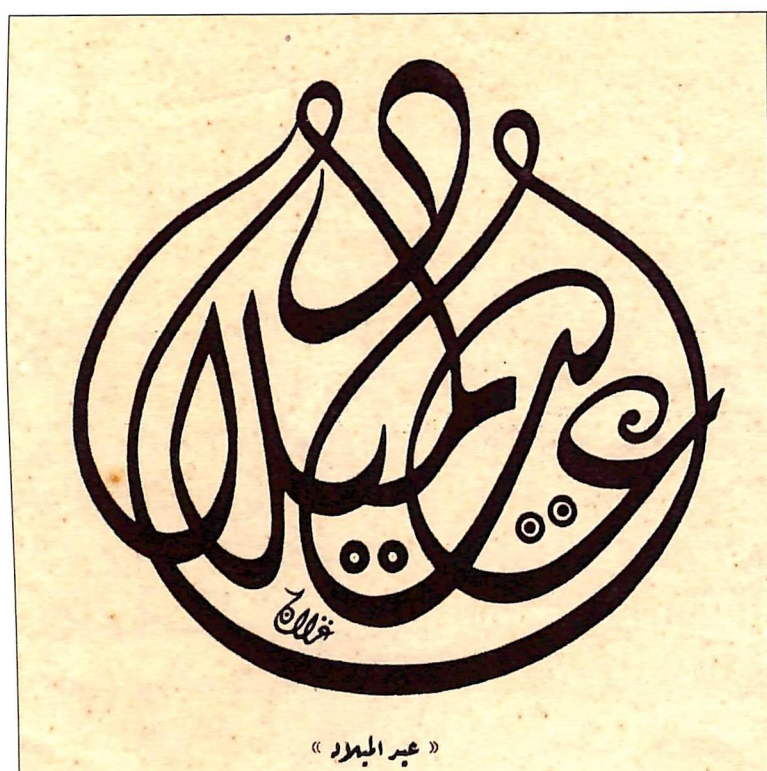 عيد الميلاد
« عيد الميلاد »